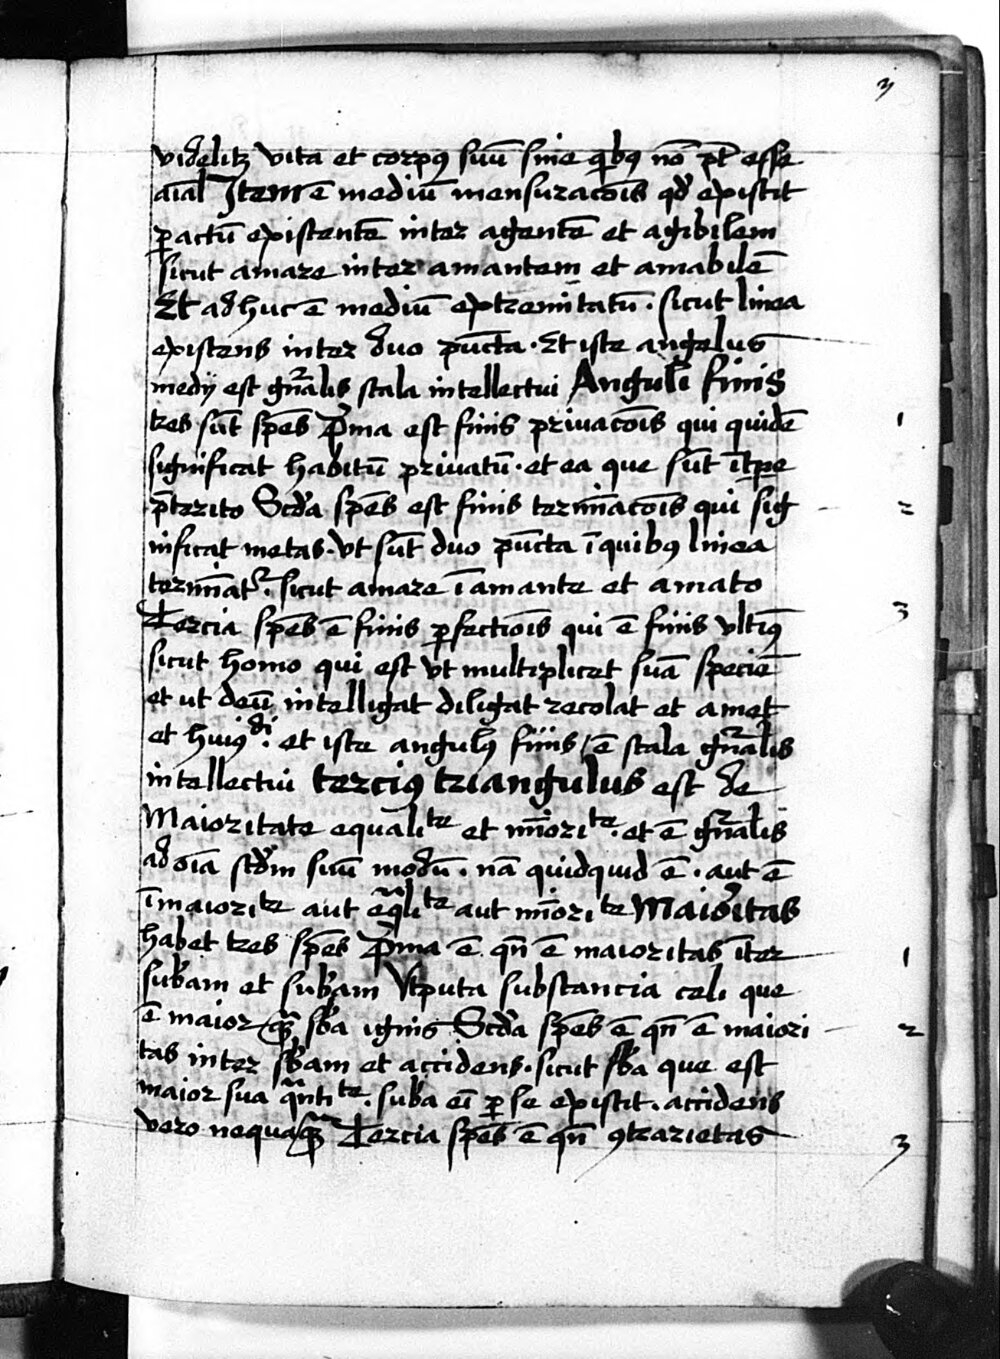 3
videlitz vita et corpꝯ suū sine qͥbꝯ nō pt̄ esse
aīal Item ē mediū mensuracōis qd̓ existit
ꝑ actū existentē inter agentē et agibilem
sicut amare inter amantem et amabilē
Et adhuc ē mediū extremitatū. sicut linea
existens inter duo pūcta. Et iste angelus
medij est gn̄alis scala intellectui Anguli finis
tres sūt spēs Pͥma est finis priuacōis qui quidē 1
significat habitū priuatū. et ea que sūt ī tp̄e
p̄terito Scd̓a spēs est finis termīacōis qui sig 2
nificat metas. vt sūt duo pūcta ī quibꝯ linea
termīatᷣ. sicut amare ī amante et amato
Tercia spēs ē finis ꝑfectiōis qui ē finis vltīꝯ 3
sicut homo qui est vt multiplicet suā speciē
et ut deū intelligat diligat recolat et amet
et huiꝯdͥ. et iste angulꝯ finis ē scala gn̄alis
intellectui terciꝯ triangulus est de
Maioritate equaliᵗᵉ et mīoriᵗᵉ. et ē gn̄alis
ad oīa scd̓m suū modū. nā quidquid ē. aut ē
ī maioriᵗᵉ aut eq̄liᵗᵉ aut mīoriᵗᵉ Maioritas
habet tres spēs Pͥma ē qn̄ ē maioritas īter 1
sub̄am et sub̄am Vtputa substancia celi que
ē maior qꝫ̄ sb̄a ignis Scd̓a spēs ē qn̄ ē maiori 2
tas inter sb̄am et accidens. sicut sb̄a que est
maior sua q̄ntiᵗᵉ. sub̄a eī ꝑ se existit. accidens
vero nequaqꝫ̄ Tercia spēs ē qn̄ ꝯtrarietas 3